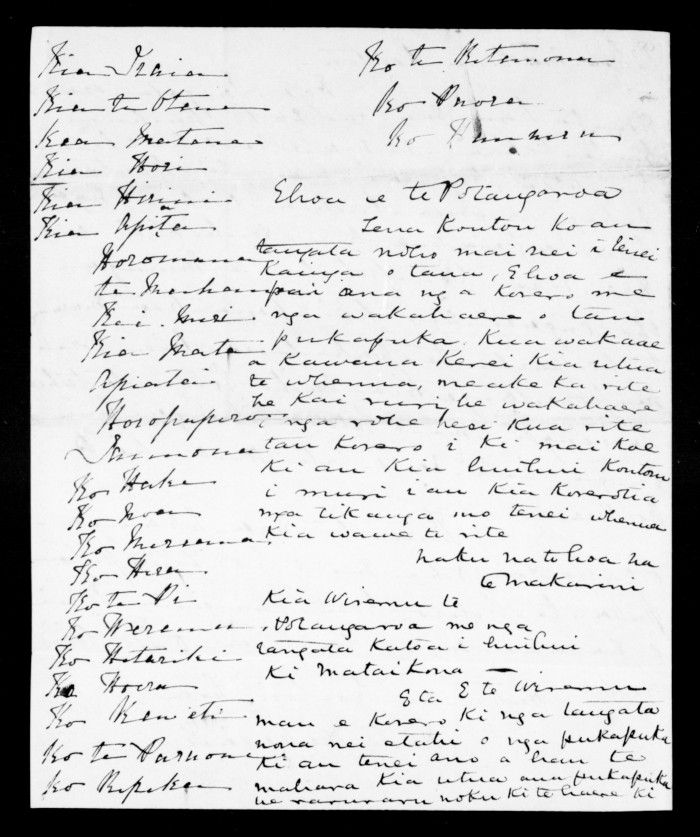 Kia Ihaia
Kia te Otene
Kia Matene
Kia Hori
Kia
Kia Apita
Horomona
te
Kia
Kia Mata
Apiata
Horopapera

Ko Hake
Ko Noa
Ko
Ko Hira
Ko te Pi
Ko Werama
Ko Hetariki
Ko Hoera
Ko
Ko te
Ko Ripeka
Ko te Ritimona
Ko Paora
Ko
Ehoa e te Potangaroa
Tena Koutou Ko au
tangata noho mai nei i tenei
Kainga o tana, Ehoa e
pai ana nga Korero me
nga wakahaere o tau
pukapuka, Kua wakaae
a Kawana Kerei Kia utua
te whenua, meake ka rite
he Kai ruri he wakahaere
i nga rohe, heoi Kua rite
tau Korero i Ki mai Koe
Ki au Kia huihui Koutou
i muri i au Kia Korerotia
nga tikanga mo tenei whenua
Kia wawe te rite
naku na to hoa na
te Makarini
Kia Wiremu te
Potangaroa me nga
tangata Katoa i huihui
Ki Mataikona
Eta E te Wiremu
mau e Korero Ki nga tangata
nona nei etahi o nga pukapuka
Ki au tenei ano a hau te
mahara Kia utua ana pukapuka
he raruraru noku Ki te haere Ki